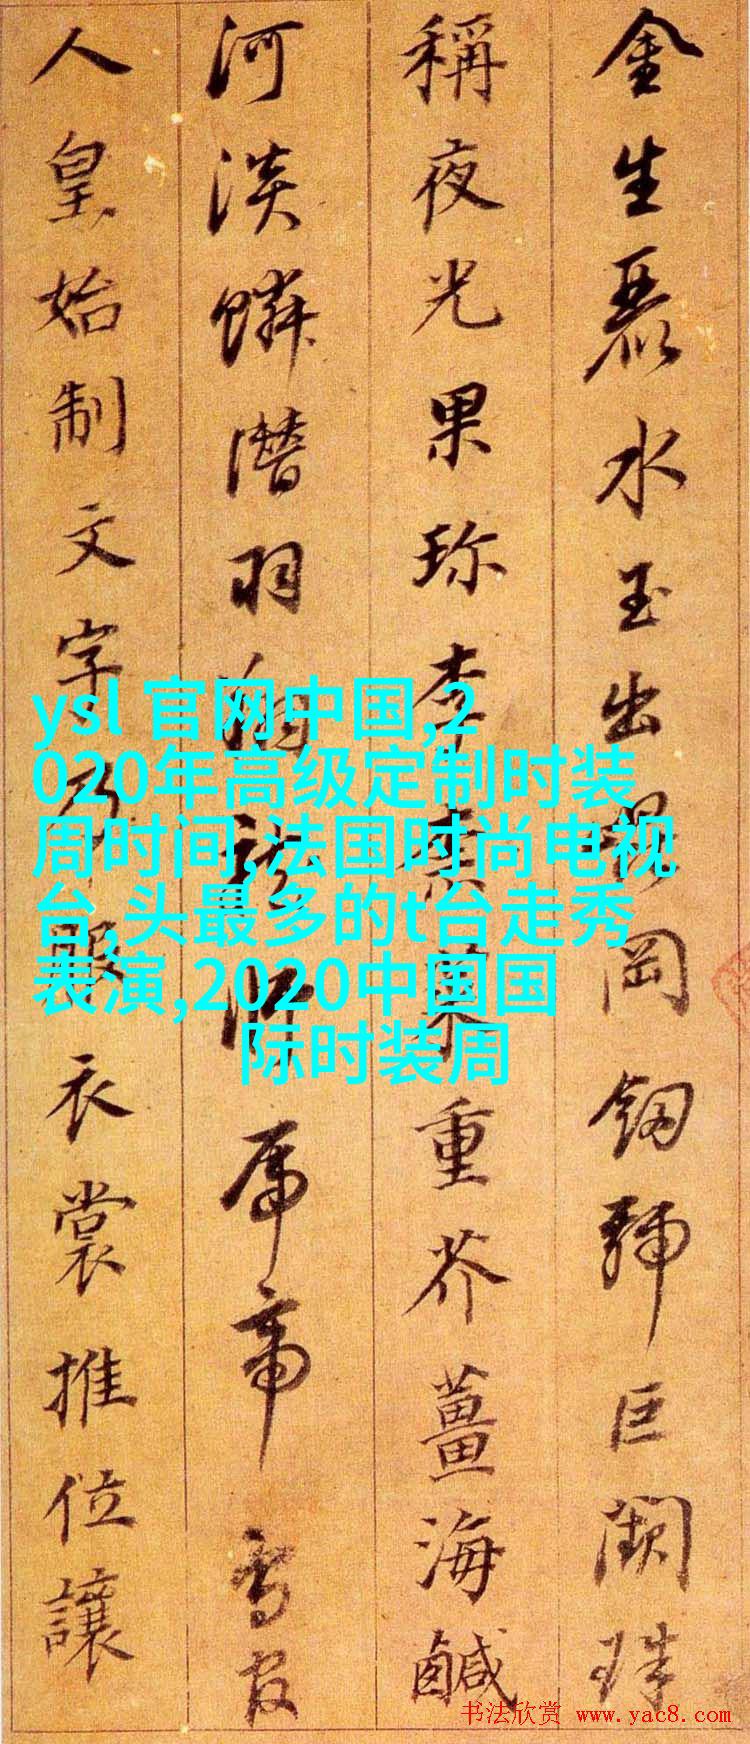 金生麗水玉出崑岡劒號巨闕珠
稱夜光果珍李柰菜重芥薑海鹹
河淡鱗潛羽翔龍師帝鳥官
人皇始制文字乃服衣裳推位讓
ysl 官网中国,2
020年高级定制时装
周时间,法国时尚电视
台,头最多的t台走秀
表演,2020中国国
际时装周
书法欣赏 www.yac8.com